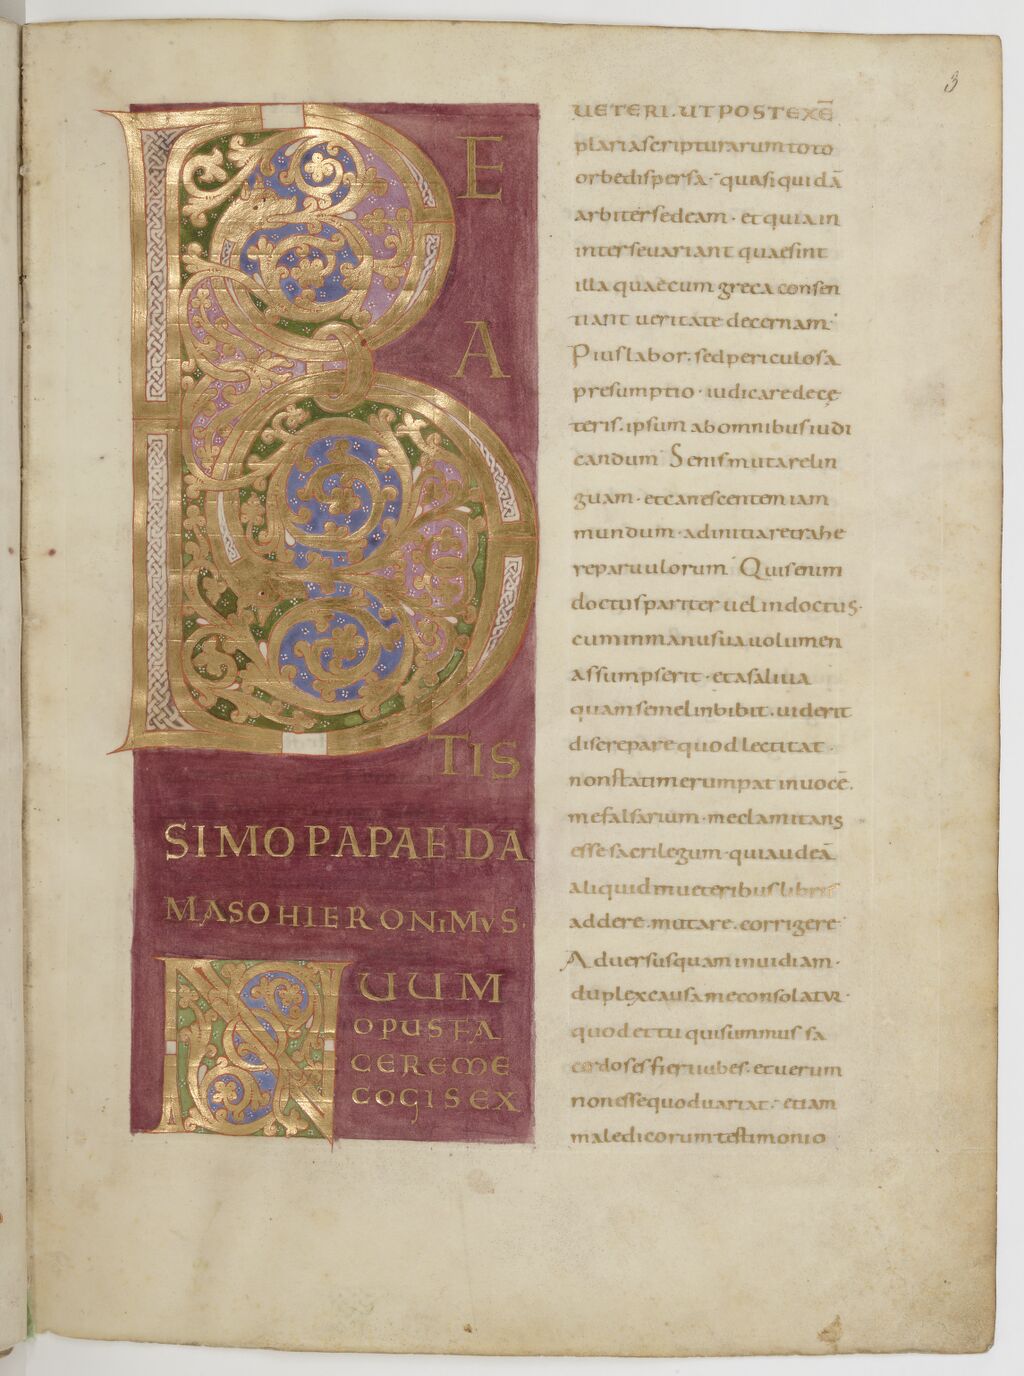 3
BEATIS
SIMO PAPAE DA
MASO HIERONIMVS.
NOUUM
OPUS FA
CERE ME
COGIS EX
UETERI. UT POST EXĒ
plaria scripturarum toto
orbe dispersa. quasi quidā
arbiter sedeam. et quia in
inter se uariant quae sint
illa quae cum greca consen
tiant ueritate decernam.
Pius labor. sed periculosa
presumptio. iudicare de cę
teris. ipsum ab omnibus iudi
candum Senis mutare lin
guam. et canescentem iam
mundum. ad initia retrahe
re paruulorum Quis enim
doctus pariter uel indoctus.
cum in manus sua uolumen
assumpserit. et a saliua
quam semel inbibit. uiderit
discrepare quod lectitat.
non statim erumpat in uocē.
me falsarium. me clamitans
esse sacrilegum. qui audeā
aliquid in ueteribus libris
addere. mutare. corrigere
Aduersus quam inuidiam.
duplex causa me consolatur.
quod et tu qui summus sa
cerdos es fieri iubes. et uerum
non esse quod uariat. etiam
maledicorum testimonio